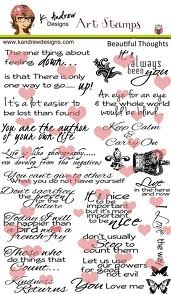 K. Andrew Designs
Art Stamps
www.kandrewdesigns.com
Beautiful Thoughts
The one thing about
feeling down...
is that There is only
one way to go... up!
It's a lot easier to
be lost than found
You are the author
of your own life
Life is like photography......
you develop from the negatives
You can't give to others
which you do not have yourself
Don't sacrifice
the
for the
future
Today I will
be happier than
bird with a
french fry
Those who
things that
Count...
Kindness
Returns
It's
always
been
you
An eye for an eye &
the whole world
would be blind
Keep Calm
Carry On
Live
in the here
and now
It's nice
to be
important
but it's more
important
to be
nice
don't usually
Stop to
count them
Let us use
our powers for
good and
not evil
You Love me
Live the way